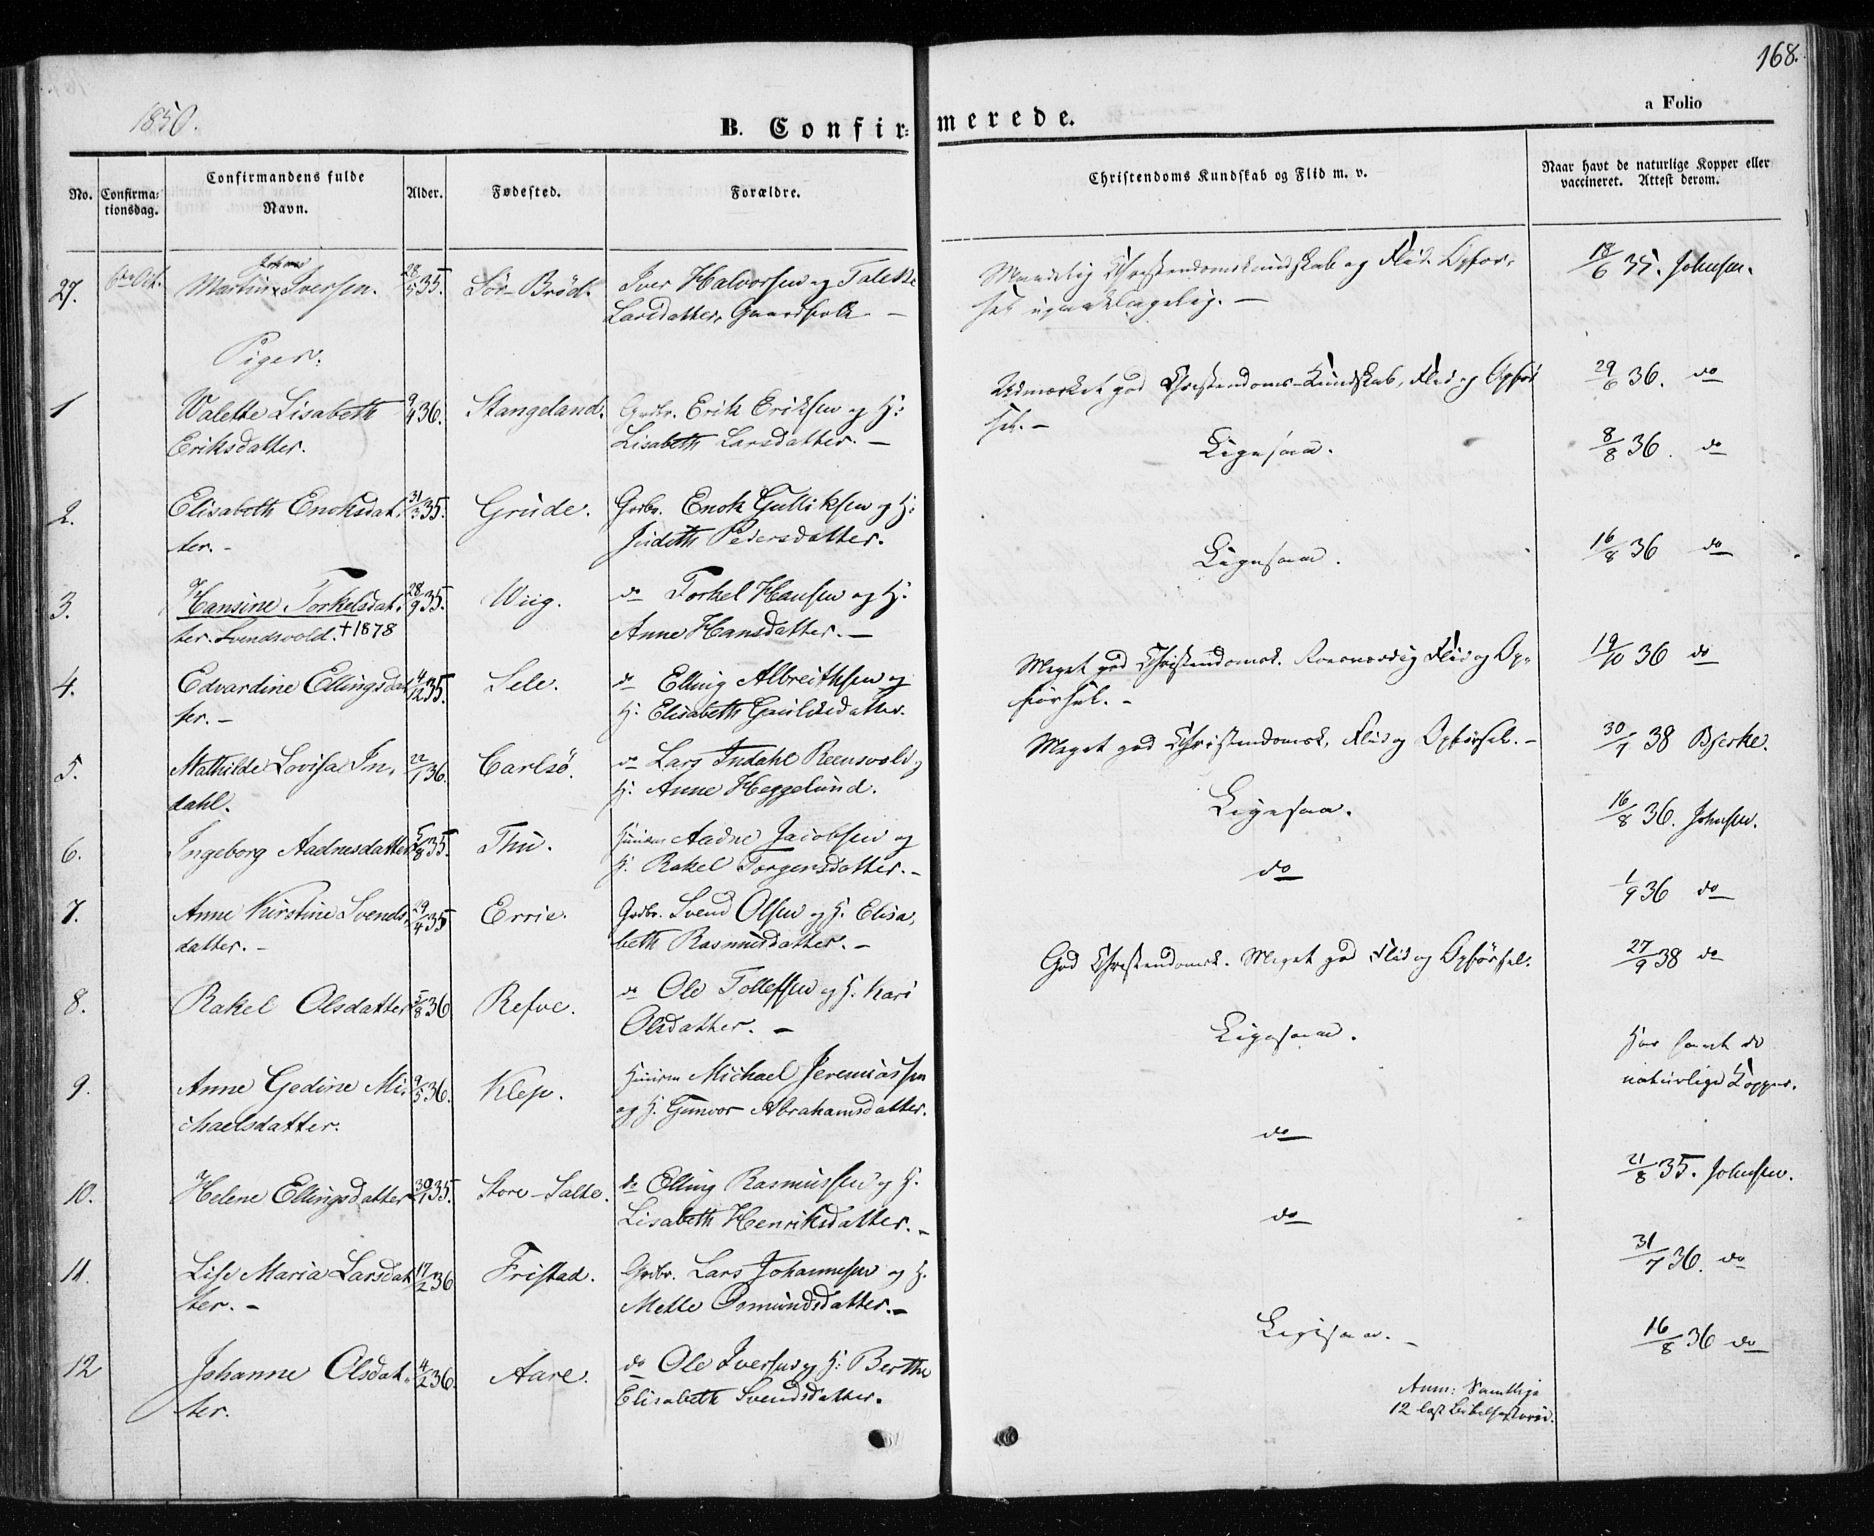 168.
1850.
B. Confirmerede.
a Folio
No.
Confirma-
tionsdag.
Confirmandens fulde
Navn.
Alder.
Fødested.
Forældre.
Christendoms Kundskab og Flid m. v.
Naar havt de naturlige Kopper eller
vaccineret. Attest derom.
27. 6te Oct. Martin Iversen. 28/5 35. Sör-Bröd. Iver Halvorsen og Talette
Larsdatter, Gaardfolk -
Maadelig Christendomskundskab og Flid. Opför-
sel upaaklagelig. -
18/6 35. Johnsen.
Piger.
1 Valette Lisabeth 9/4 36. Stangeland. Grdbr. Erik Eriksen og H:
Eriksdatter. Lisabeth Larsdatter. -
Udmærket god Christendoms-Kundskab, Flid og Opför
sel. -
29/6 36. do
2. Elisabeth Enoksdat- 31/3 35. Grude. Grdbr. Enok Gulliksen og H:
ter. - Judith Pedersdatter.
Ligesaa.
8/8 36. do
3. Hansine Torkelsdat- 28/9 35. Wiig. do Torkel Hansen og H.
ter. Svendsvold. +1878 Anne Hansdatter. -
Ligesaa.
16/8 36 do
4. Edvardine Ellingsdat 4/12 35. Sele. do Elling Albreithsen og
ter. - H. Elisabeth
Meget god Christendomsk. Roesværdig Flid og Op-
förhsel. -
19/10 36 do
5. Mathilde Lovisa In- 22/1 36. Carlsö. do Lars Indahl Reensvold og
dahl. H. Anne Heggelund.
Meget god Christendomsk, Flid og Opförsel. -
30/7 38 Bjerke.
6. Ingeborg Aadnesdatter 5/8 35. Thu. Huusm Aadne Jacobsen og
H. Rakel Torgersdatter. -
Ligesaa.
16/8 36. Johnsen.
7. Anne Kirstine Svends- 29/4 35 Errie. Grdbr. Svend Olsen og H. Elisa-
datter. - beth Rasmusdatter. -
do
1/9 36 do
8. Rakel Olsdatter 5/8 36 Refve. do Ole Tollefsen og H. Kari
Olsdatter. -
God Christendomsk. Meget god Flid og Opförsel.
27/9 38 do
9. Anne Gedine Mi- 9/5 36. Klep. Huusm Michael Jeremiassen
chaelsdatter. og H. Gunvor Abrahamsdatter.
Ligesaa.
Har havt de
naturlige Kopper.
10. Helene Ellingsdatter 30/1 35. Store-Salte. do Elling Rasmussen og H.
Lisabeth Henriksdatter. -
do
21/8 35. Johnsen.
11. Lise Maria Larsdat 17/2 36 Fristad. Grdbr. Lars Johannesen og H.
ter. - Mette Osmundsdatter. -
do
31/7 36. do
12 Johanne Olsdat- 4/2 36. Aare. do Ole Iversen og H: Berthe
ter. Elisabeth Svendsdatter.
Ligesaa. -
16/8 36 do
Anm: Samtlige
12 læst Bibelhistorie.